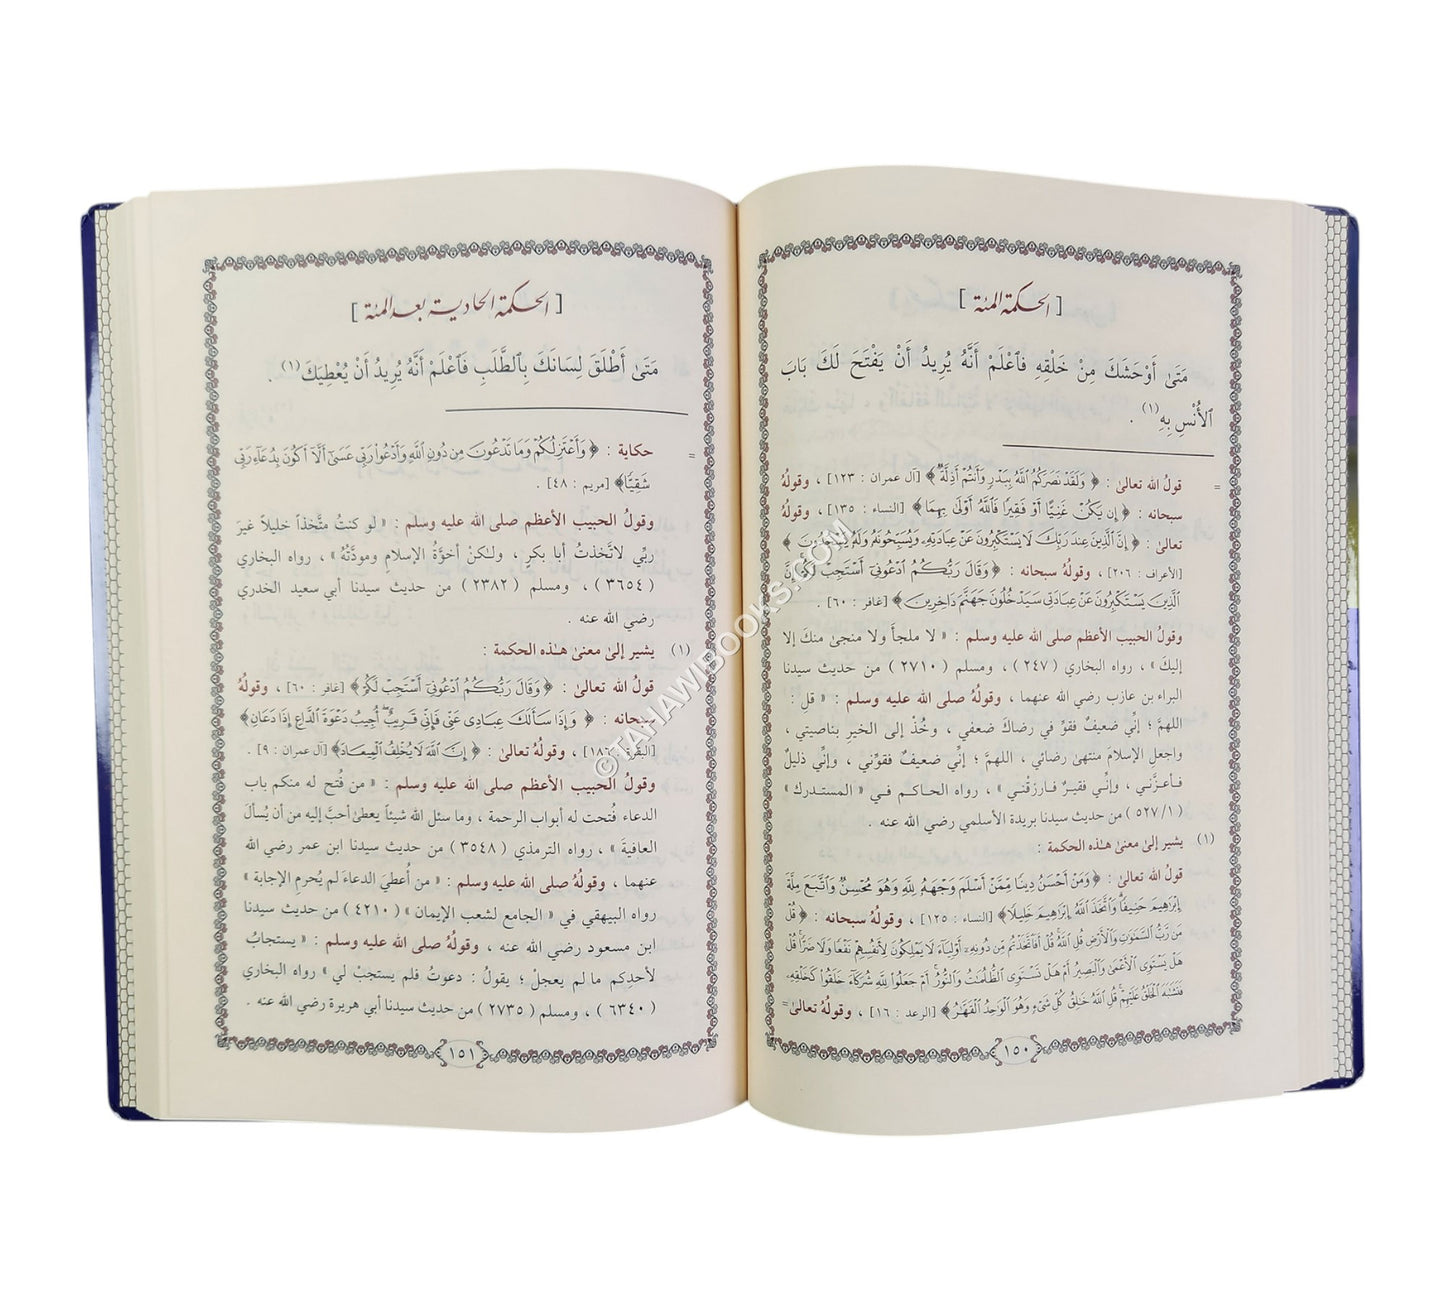 [ الحكمة المئة ]
مَتَىٰ أَوْحَشَكَ مِنْ خَلْقِهِ فَٱعْلَمْ أَنَّهُ يُرِيدُ أَنْ يَفْتَحَ لَكَ بَابَ
ٱلْأُنْسِ بِهِ (١) .
= قولُ الله تعالىٰ : ﴿ وَلَقَدْ نَصَرَكُمُ ٱللَّهُ بِبَدْرٍ وَأَنتُمْ أَذِلَّةٌ ﴾ [آل عمران : ١٢٣] ، وقولُهُ
سبحانه : ﴿ إِن يَكُنْ غَنِيًّا أَوْ فَقِيرًا فَٱللَّهُ أَوْلَىٰ بِهِمَا ﴾ [النساء : ١٣٥] ، وقولُهُ
تعالىٰ : ﴿ إِنَّ ٱلَّذِينَ عِندَ رَبِّكَ لَا يَسْتَكْبِرُونَ عَنْ عِبَادَتِهِۦ وَيُسَبِّحُونَهُۥ وَلَهُۥ يَسْجُدُونَ ﴾
[الأعراف : ٢٠٦] ، وقولُهُ سبحانه : ﴿ وَقَالَ رَبُّكُمُ ٱدْعُونِىٓ أَسْتَجِبْ لَكُمْ إِنَّ
ٱلَّذِينَ يَسْتَكْبِرُونَ عَنْ عِبَادَتِى سَيَدْخُلُونَ جَهَنَّمَ دَاخِرِينَ ﴾ [غافر : ٦٠] .
وقولُ الحبيب الأعظم صلى الله عليه وسلم : « لا ملجأ ولا منجىٰ منكَ إلا
إليكَ » ، رواه البخاري ( ٢٤٧ ) ، ومسلم ( ٢٧١٠ ) من حديث سيدنا
البراء بن عازب رضي الله عنهما ، وقولُهُ صلى الله عليه وسلم : « قل :
اللهمَّ ؛ إنِّي ضعيفٌ فقوِّ في رضاكَ ضعفي ، وخُذْ إلى الخيرِ بناصيتي ،
واجعلِ الإسلامَ منتهىٰ رضائي ، اللهمَّ ؛ إنِّي ضعيفٌ فقوِّني ، وإنِّي ذليلٌ
فأعزَّني ، وإنِّي فقيرٌ فارزقْني » ، رواه الحاكم في « المستدرك »
( ١/ ٥٢٧ ) من حديث سيدنا بريدة الأسلمي رضي الله عنه .
(١) يشير إلىٰ معنىٰ هذه الحكمة :
قولُ الله تعالىٰ : ﴿ وَمَنْ أَحْسَنُ دِينًا مِّمَّنْ أَسْلَمَ وَجْهَهُۥ لِلَّهِ وَهُوَ مُحْسِنٌ وَٱتَّبَعَ مِلَّةَ
إِبْرَٰهِيمَ حَنِيفًا وَٱتَّخَذَ ٱللَّهُ إِبْرَٰهِيمَ خَلِيلًا ﴾ [النساء : ١٢٥] ، وقولُهُ سبحانه : ﴿ قُلْ
مَن رَّبُّ ٱلسَّمَٰوَٰتِ وَٱلْأَرْضِ قُلِ ٱللَّهُ قُلْ أَفَٱتَّخَذْتُم مِّن دُونِهِۦٓ أَوْلِيَآءَ لَا يَمْلِكُونَ لِأَنفُسِهِمْ نَفْعًا وَلَا ضَرًّا قُلْ
هَلْ يَسْتَوِى ٱلْأَعْمَىٰ وَٱلْبَصِيرُ أَمْ هَلْ تَسْتَوِى ٱلظُّلُمَٰتُ وَٱلنُّورُ أَمْ جَعَلُوا۟ لِلَّهِ شُرَكَآءَ خَلَقُوا۟ كَخَلْقِهِۦ
فَتَشَٰبَهَ ٱلْخَلْقُ عَلَيْهِمْ قُلِ ٱللَّهُ خَٰلِقُ كُلِّ شَىْءٍ وَهُوَ ٱلْوَٰحِدُ ٱلْقَهَّٰرُ ﴾ [الرعد : ١٦] ، وقولُهُ تعالىٰ =
١٥٠
[ الحكمة الحادية بعد المئة ]
مَتَىٰ أَطْلَقَ لِسَانَكَ بِٱلطَّلَبِ فَٱعْلَمْ أَنَّهُ يُرِيدُ أَنْ يُعْطِيَكَ (١) .
= حكاية : ﴿ وَأَعْتَزِلُكُمْ وَمَا تَدْعُونَ مِن دُونِ ٱللَّهِ وَأَدْعُوا۟ رَبِّى عَسَىٰٓ أَلَّآ أَكُونَ بِدُعَآءِ رَبِّى
شَقِيًّا ﴾ [مريم : ٤٨] .
وقولُ الحبيب الأعظم صلى الله عليه وسلم : « لو كنتُ متَّخذاً خليلاً غيرَ
ربِّي لاتَّخذتُ أبا بكرٍ ، ولكنْ أخوَّةُ الإسلامِ ومودَّتُهُ » ، رواه البخاري
( ٣٦٥٤ ) ، ومسلم ( ٢٣٨٢ ) من حديث سيدنا أبي سعيد الخدري
رضي الله عنه .
(١) يشير إلىٰ معنىٰ هذه الحكمة :
قولُ الله تعالىٰ : ﴿ وَقَالَ رَبُّكُمُ ٱدْعُونِىٓ أَسْتَجِبْ لَكُمْ ﴾ [غافر : ٦٠] ، وقولُهُ
سبحانه : ﴿ وَإِذَا سَأَلَكَ عِبَادِى عَنِّى فَإِنِّى قَرِيبٌ أُجِيبُ دَعْوَةَ ٱلدَّاعِ إِذَا دَعَانِ ﴾
[البقرة : ١٨٦] ، وقولُهُ تعالىٰ : ﴿ إِنَّ ٱللَّهَ لَا يُخْلِفُ ٱلْمِيعَادَ ﴾ [آل عمران : ٩] .
وقولُ الحبيب الأعظم صلى الله عليه وسلم : « من فُتح له منكم باب
الدعاء فُتحت له أبواب الرحمة ، وما سئل الله شيئاً يعطىٰ أحبَّ إليه من أن يُسألَ
العافيةَ » ، رواه الترمذي ( ٣٥٤٨ ) من حديث سيدنا ابن عمر رضي الله
عنهما ، وقولُهُ صلى الله عليه وسلم : « من أُعطيَ الدعاءَ لم يُحرمِ الإجابة »
رواه البيهقي في « الجامع لشعب الإيمان » ( ٤٢١٠ ) من حديث سيدنا
ابن مسعود رضي الله عنه ، وقولُهُ صلى الله عليه وسلم : « يستجابُ
لأحدِكم ما لم يعجلْ ؛ يقولُ : دعوتُ فلم يستجبْ لي » رواه البخاري
( ٦٣٤٠ ) ، ومسلم ( ٢٧٣٥ ) من حديث سيدنا أبي هريرة رضي الله عنه .
١٥١
©TAHAWIBOOKS.COM